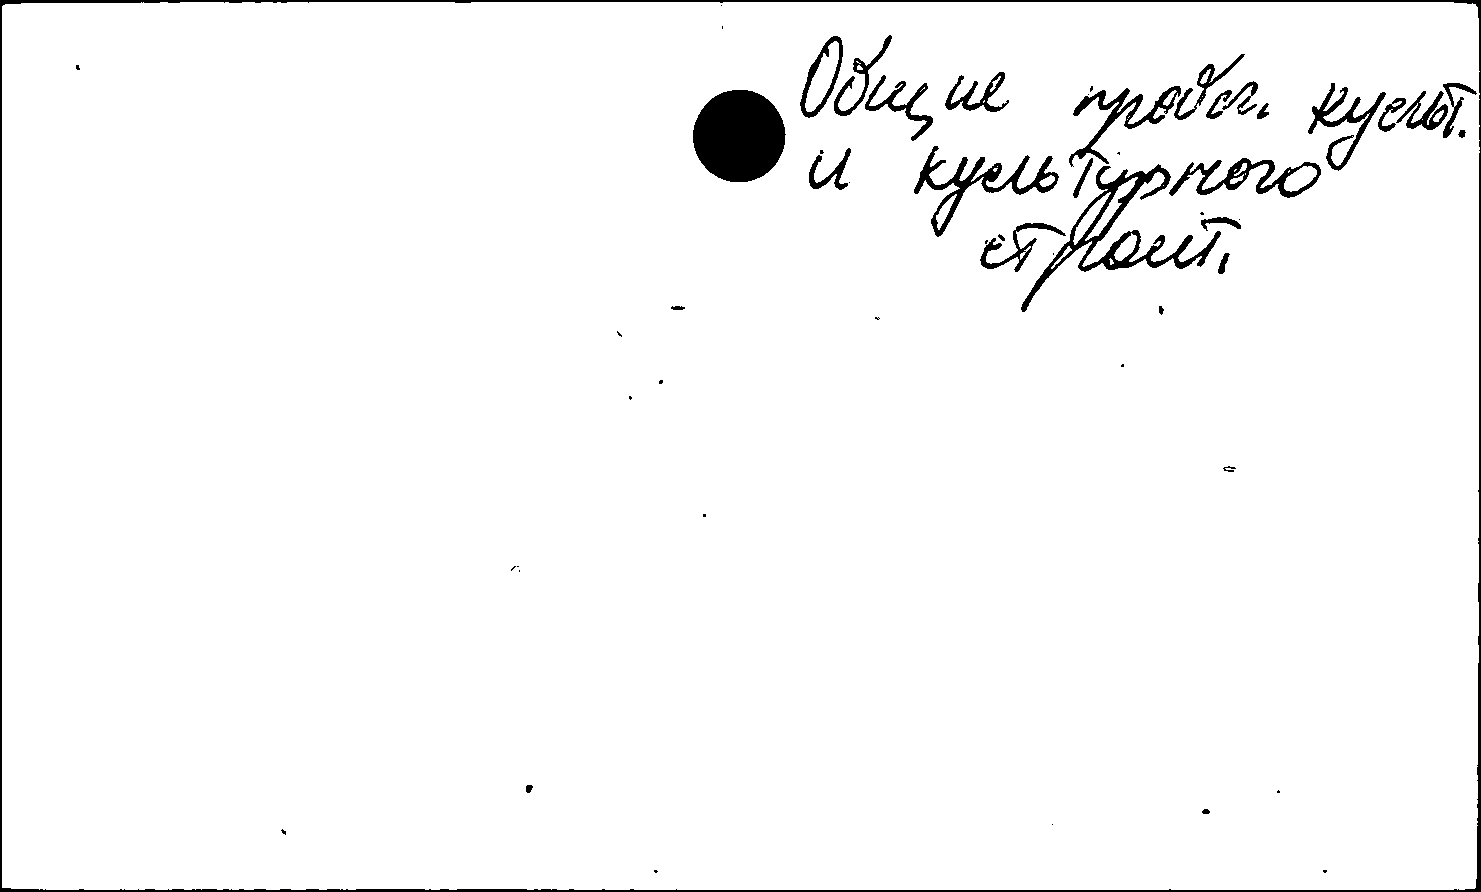 Общие пробл. культ.
и культурного
строит.